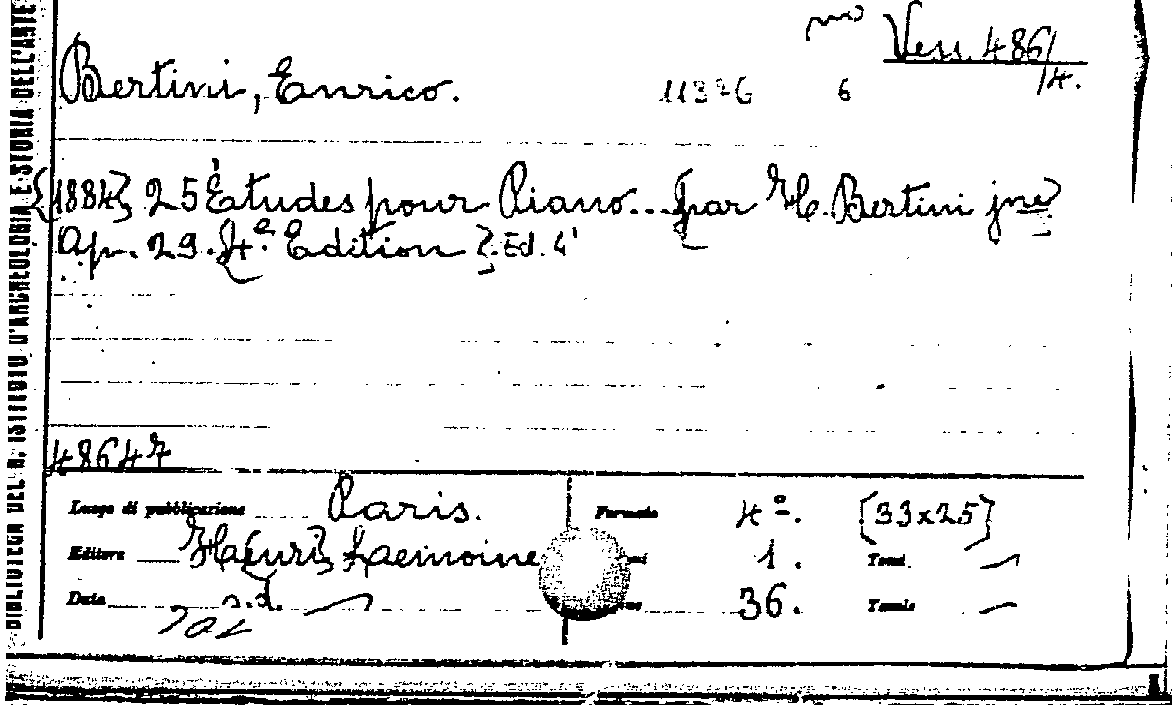 BIBLIOTECA DEL R. ISTITUTO D'ARCHEOLOGIA E STORIA DELL'ARTE
Vess. 486/14.
Bertini, Enrico. 11376 6
[1884] 25 Études pour Piano... par H. Bertini jne
Op. 29. 4e. Edition
48647
Luogo di pubblicazione Paris. Formato 4º. [33x25]
Editore H[enri] Lemoine 1. Tomi
Data s.d. 36. Tavole